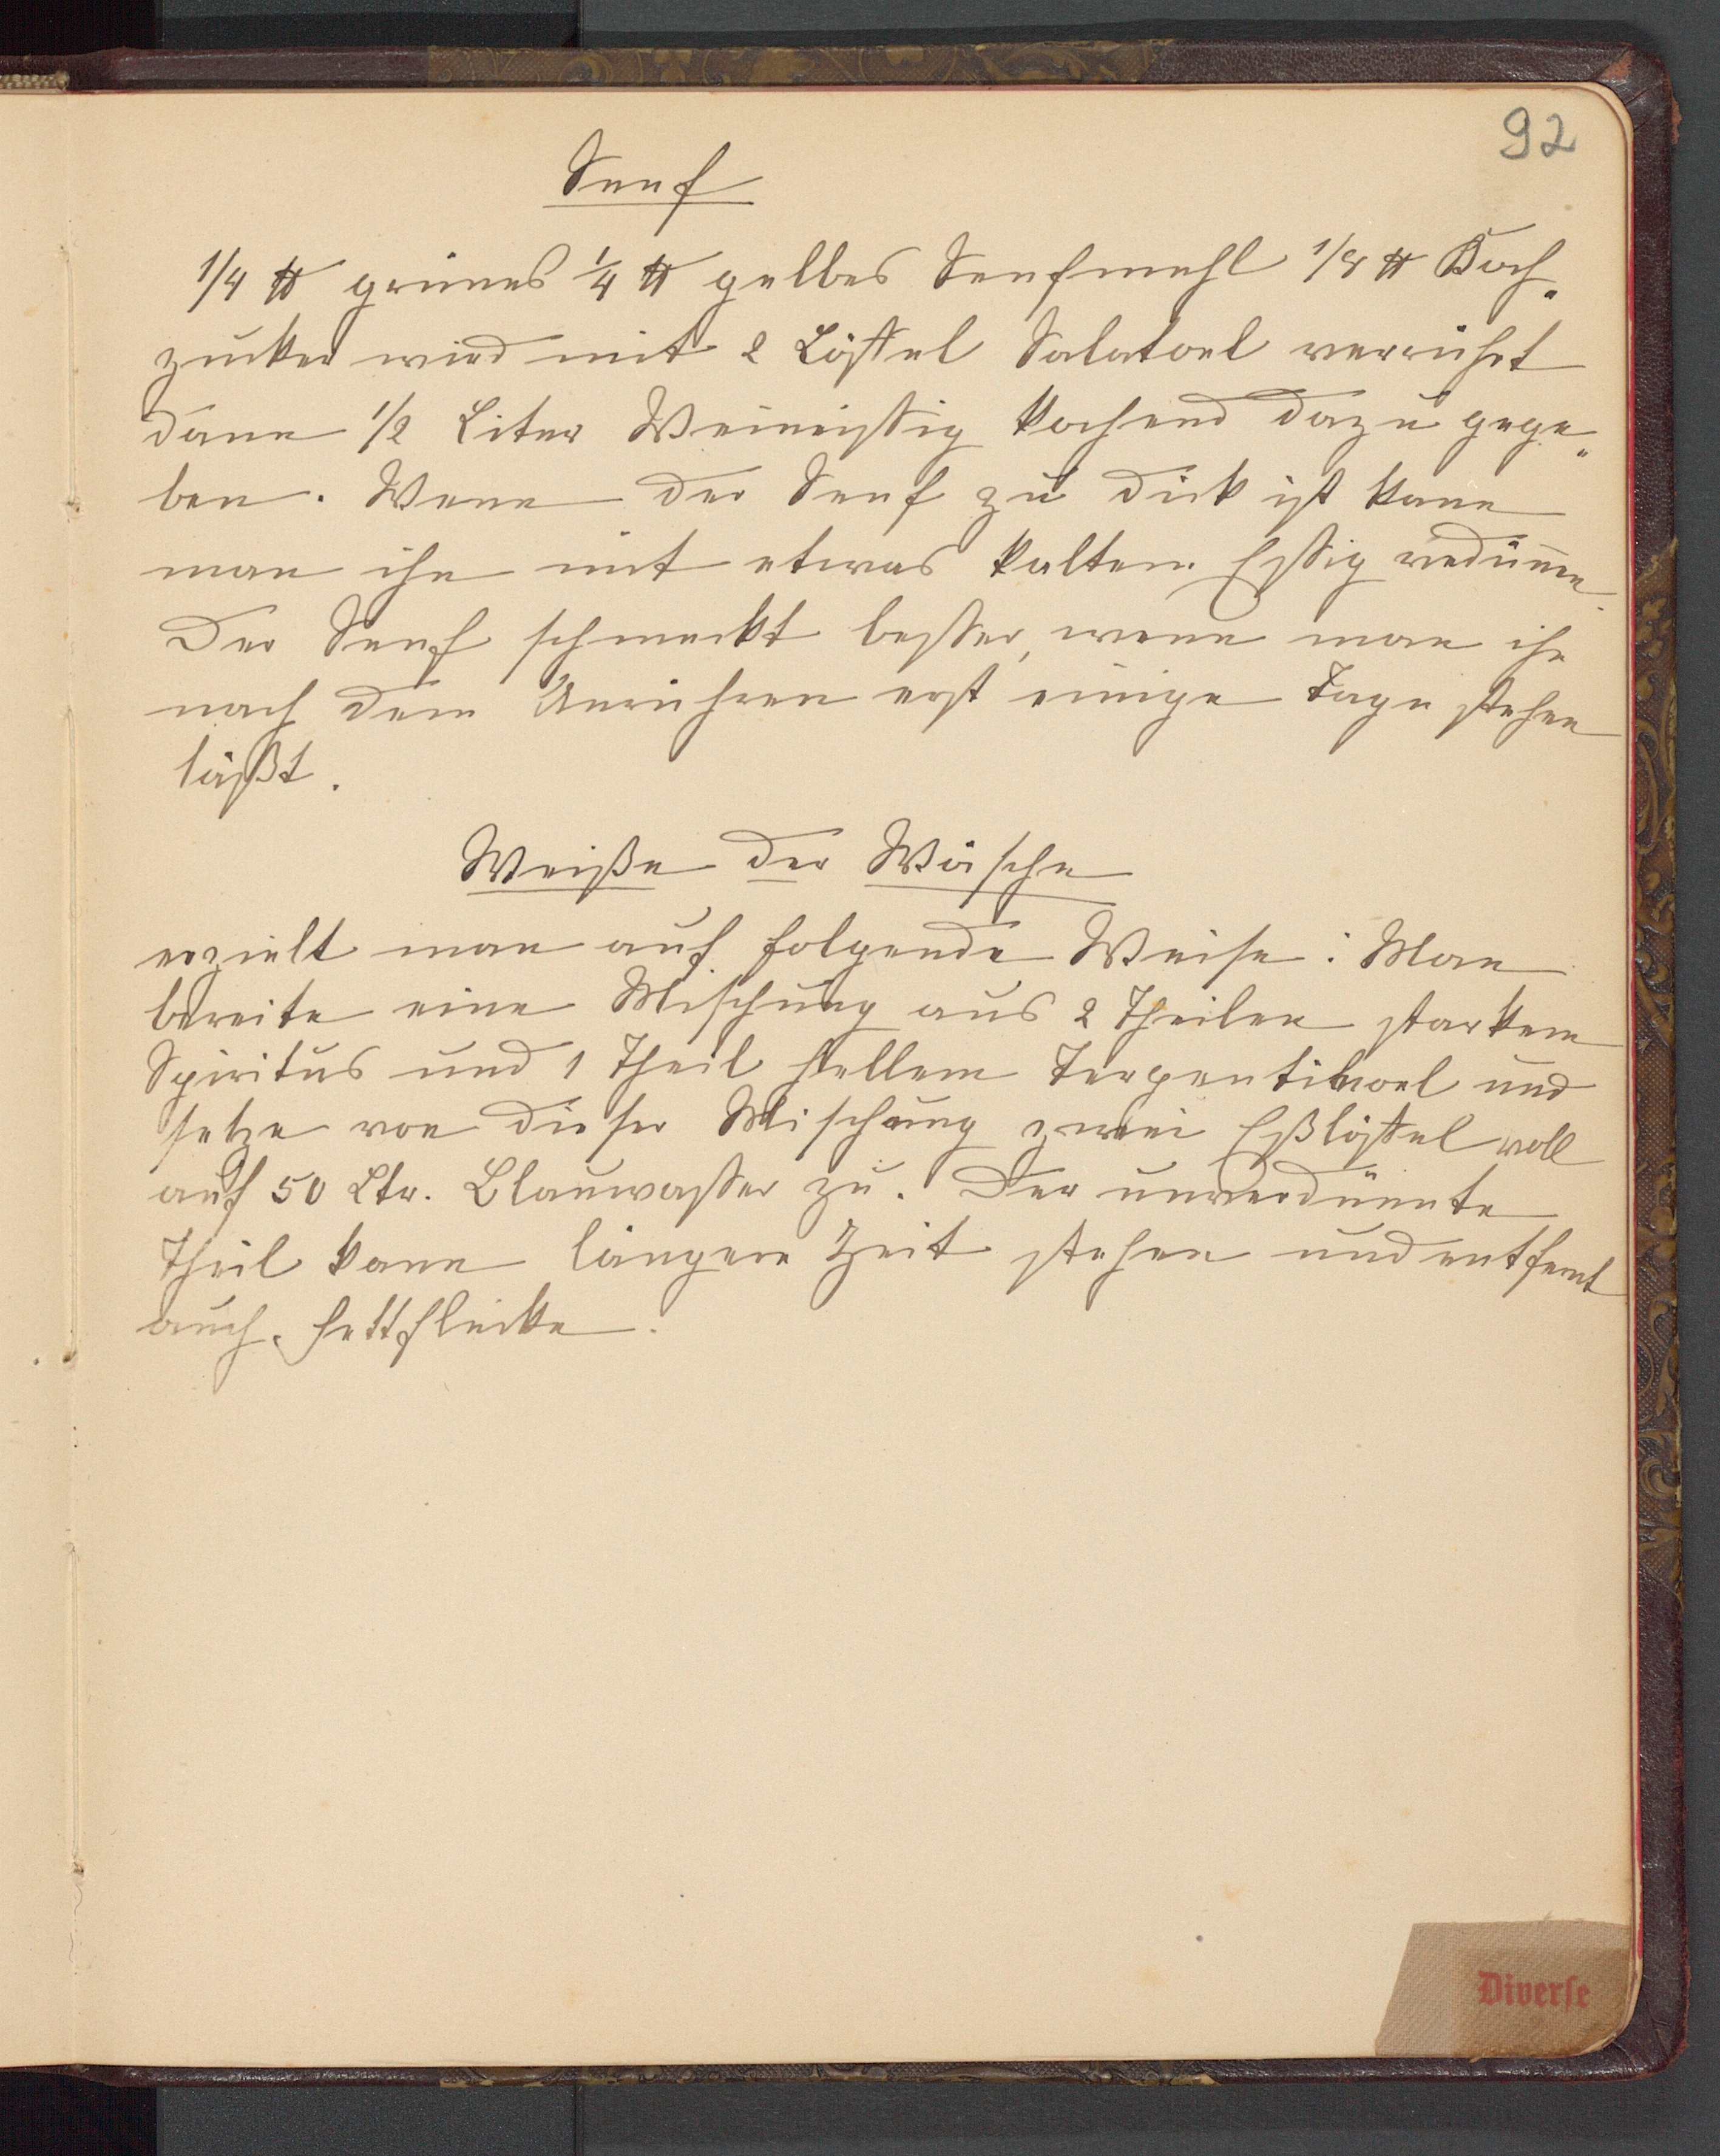 92
Senf
1/4 ℔ grünes 1/4 ℔ gelbes Senfmehl 1/8 ℔ Koch-
zucker wird mit 2 Löffel Salatoel verrührt
dann 1/2 Liter Weineissig kochend dazu gege-
ben. Wenn der Senf zu dick ist kann
man ihn mit etwas kaltem Essig verdünnen.
Der Senf schmeckt besser, wenn man ihn
nach dem Anrühren erst einige Tage stehen
läßt.
Weiße der Wäsche
erzielt man auf folgende Weise: Man
bereite eine Mischung aus 2 Theilen starkem
Spiritus und 1 Theil hellem Terpentinoel und
setze von dieser Mischung zwei Eßlöffel voll
auf 50 Ltr. Blauwasser zu. Der unverdünnte
Theil kann längere Zeit stehen und entfernt
auch Fettflecke.
Diverse